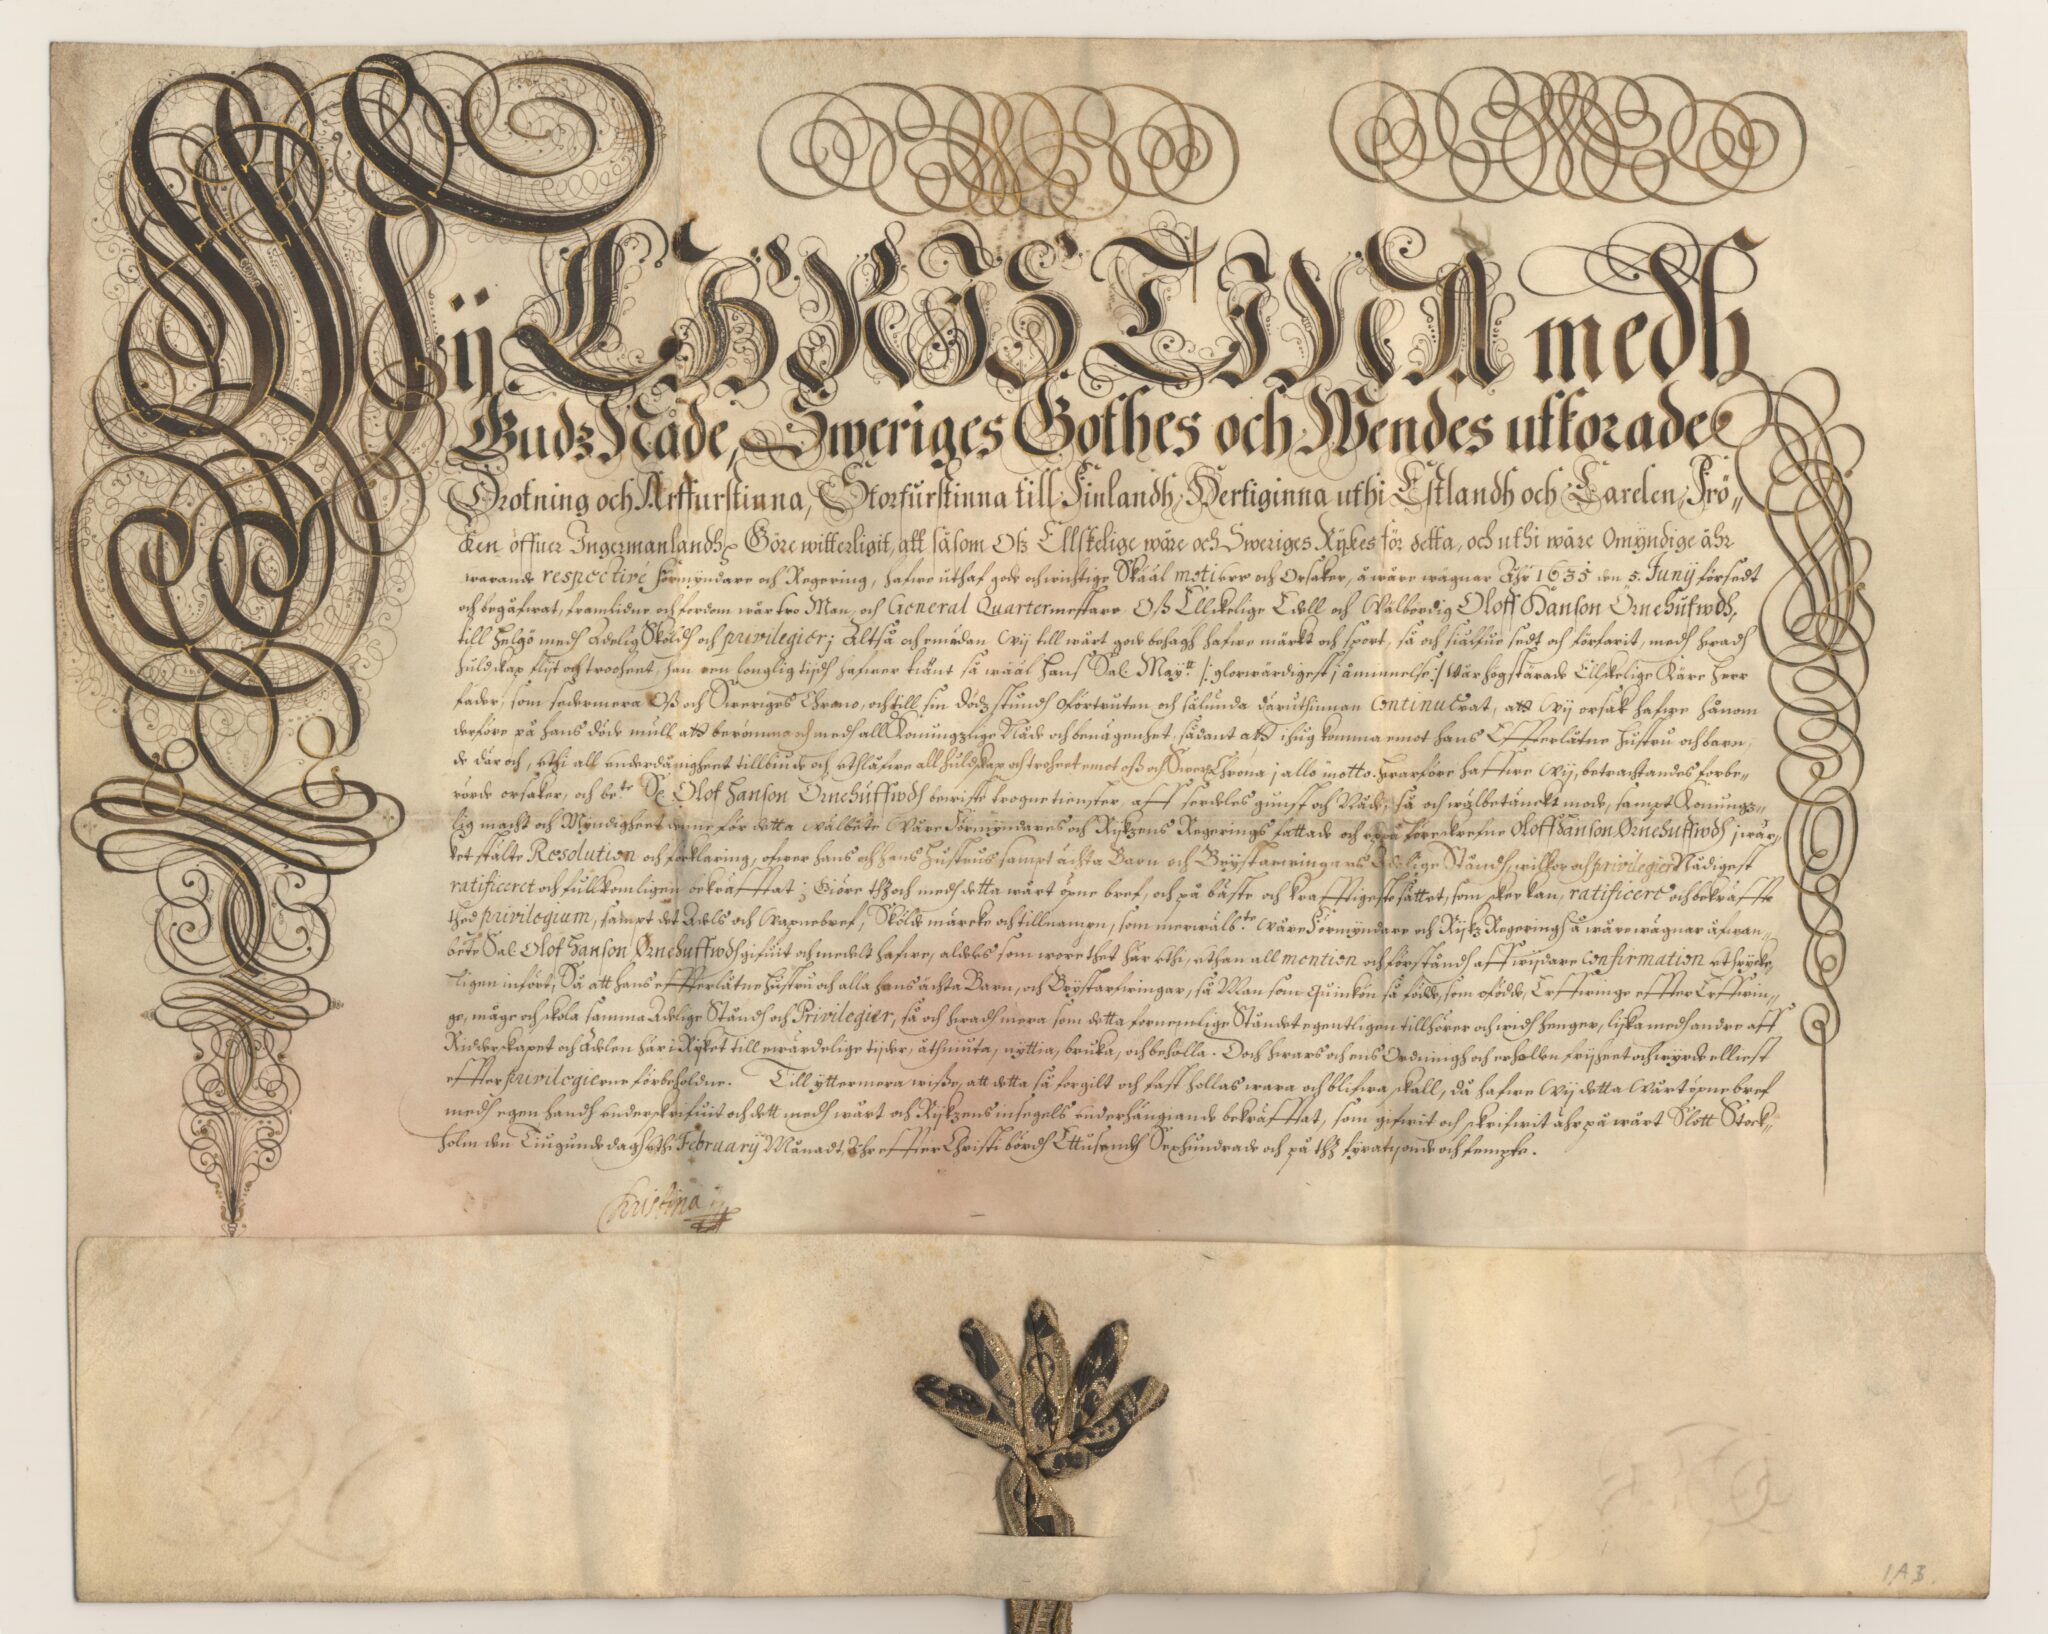 Wÿ CHRISTINA medh
Gudz Nåde, Sweriges Gothes och Wendes utkorade
Drotning och Arffurstinna, Storfurstinna till Finlandh, Hertiginna uthi Estlandh och Carelen, Frö-
ken öffuer Ingermanlandh, Göre witterligit, att såsom Oß Ellskelige wåre och Sweriges Rijkes för detta, och uthi wåre Omyndige åhr
warande respectivé Förmyndare och Regering, hafwe uthaf gode och wichtige Skääl motiver och Orsaker, å wåre wägnar Åhr 1635 den 5. Junij försedt
och begåfwat, framlidne och fordom wår tro Man, och General Quartermestare Oß Ellskelige Edell och Wälbördig Oloff Hanson Örnehufwdh,
till Helgö medh Adelig Sköldh och privilegier; Altså och emedan Wij till wårt gode behagh hafwe märkt och sport, så och sielfue sedt och förfarit, medh hwadh
huldskap flijt och trooheet, han een longlig tijdh hafwer tiänt så wääl Hans Sal. Maÿ:tt /: glorwärdigest i åminnelse :/ Wår högstärade Ellskelige Käre Herr
fader, som sedermera Oß och Sweriges Chrono, och till sin dödz stundh oförtruten och sålunda däruthinnan Continuerat, att Wij orsak hafwe hånom
derföre på hans döde mull att berömma och medh all Konungzlige Nåde och benägenhet, sådant att ihug komma emot hans Effterlåtne Hustru och barn,
de där och, uthi all underdånigheet tillbiude och uthlåfwe all huldskap och troheet emot oß och Swer: Chrona i allo motto. Hwarföre haffwe Wij, betrachtandes forbe-
rörde orsaker, och be:te Sl. Olof Hanson Örnehuffwdh bewiste trogne tienster, aff serdeles gunst och Nåde, så och wälbetänckt mode, sampt Konungz-
lig macht och Myndigheet denne för detta wälbe:te Wåre Förmyndares och Rijkzens Regerings fattade och oppå föreskrefne Oloff Hanson Örnehuffwdh i wär-
ket stälte Resolution och förklaring, ofwer hans och hans Hustrus sampt ächta Barn och Bröstarfwingars Adelige Ståndh, wilkor och privilegier Nådigest
ratificeret och fullkomligen bekräfftat; Giöre thz och medh detta wårt öpne bref, och på bäste och krafftigeste sättet, som skee kan, ratificere och bekräffte
thed privilegium, sampt det Adels och Wapnebref, Sköldemärcke och tillnampn, som merwälb:te Wåre Förmyndare och Rijkz Regeringh å wåre wägnar åfwan-
be:te Sal: Olof Hanson Örnehuffwdh gifwit och medelt hafwe, aldeles som wore thet här uthi, uthan all mention och förståndh aff wijdare Confirmation uthtrycke-
ligen infört, Så att hans effterlåtne Hustru och alla hans ächta Barn, och Bröstarfwingar, så Man som Quinkön så födde, som ofödde, Erffwinge effter Erffwin-
ge, måge och skola samma Adelige Ståndh och Privilegier, så och hwadh mera som detta fornemlige Ståndet egentligen tillhörer och widh henger, lijka medh andre aff
Ridderskapet och Adelen här i Rijket till ewärdelige tijder, åthniuta, nyttia, bruka, och beholla. Doch hwars och ens Ordningh och erhollen frijheet och wyrde elliest
effter privilegierne förbeholdne. Till yttermera wiße, att detta så forgilt och fast hollas wara och blifwa skall, då hafwe Wij detta Wårt öpne bref
medh egen handh underskrifwit och dett medh wårt och Rijkzens insegels underhängiande bekräfftat, som gifwit och skrifwit ähr på wårt Slott Stock-
holm den Tiugunde dagh uthi Februarÿ Månadt, Åhr effter Christi bördh Ettusendh Sexhundrade och på thz fyratijonde och fempte.
Christina
1 A 3.